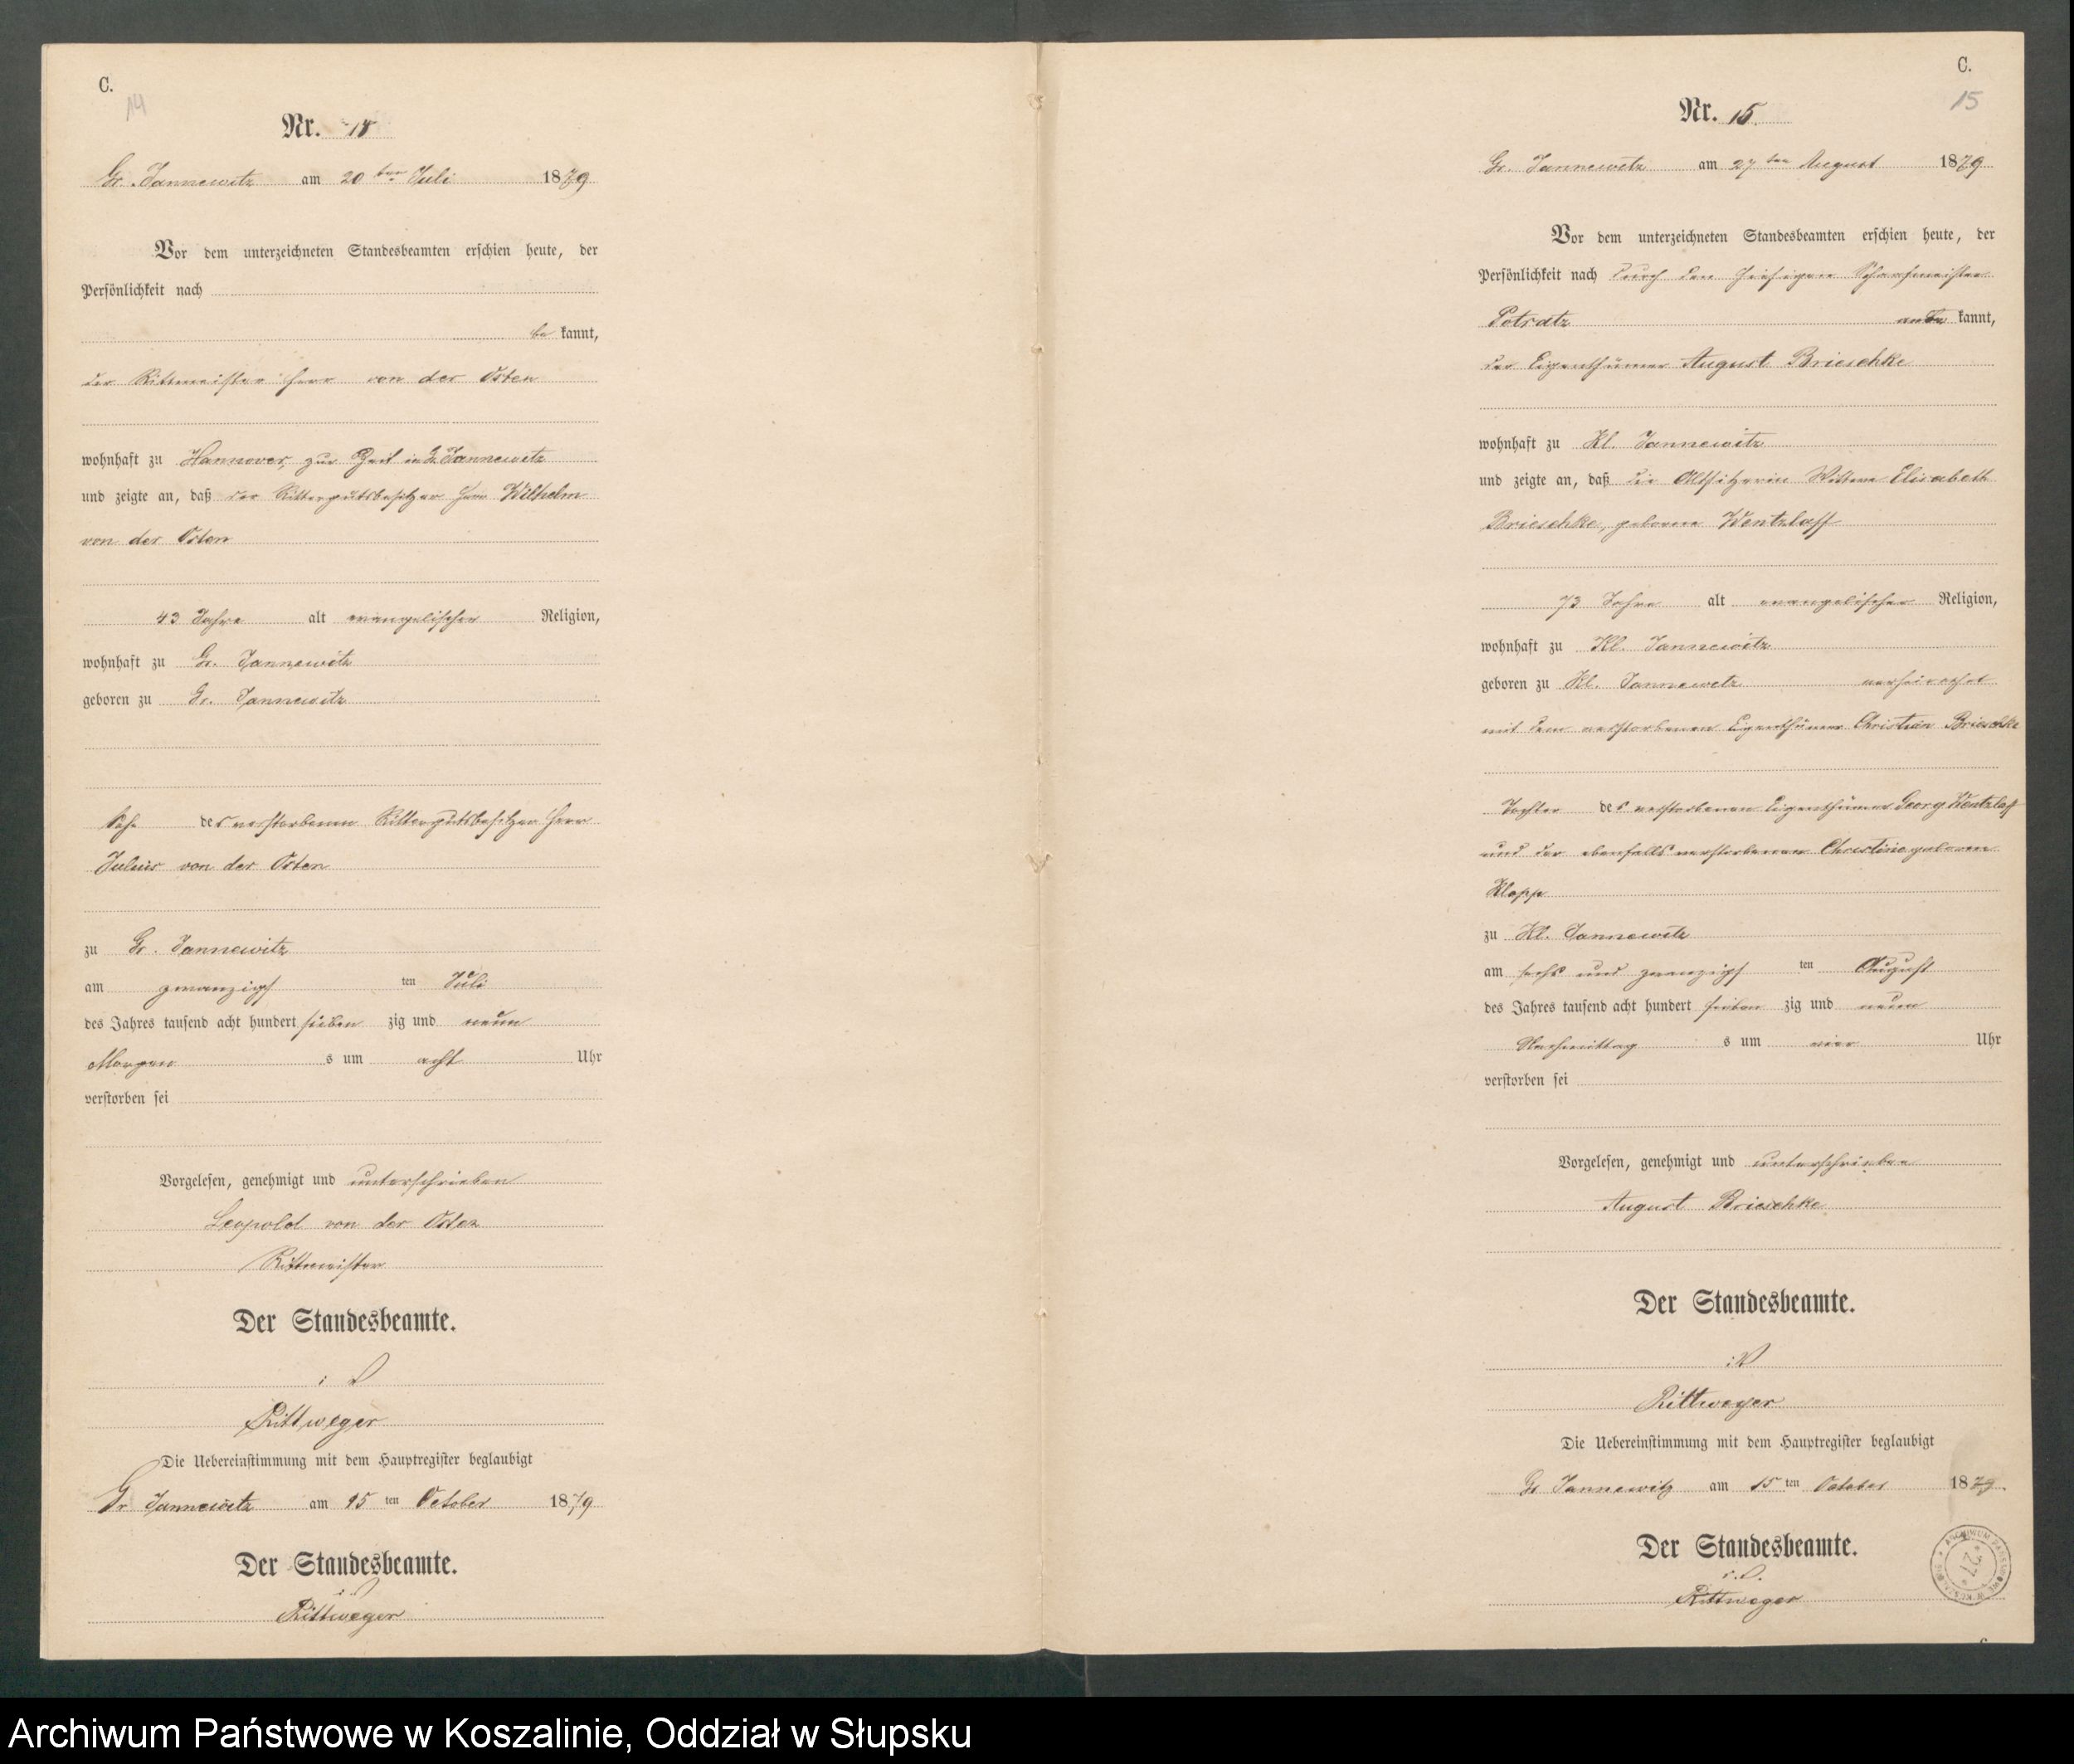 C.
14
Nr. 14
Gr. Jannewitz am 20ten Juli 1879
Vor dem unterzeichneten Standesbeamten erschien heute, der
Persönlichkeit nach
be kannt,
der Rittmeister Herr von der Osten
wohnhaft zu Hannover, zur Zeit in Gr. Jannewitz
und zeigte an, daß der Rittergutsbesitzer Herr Wilhelm
von der Osten
43 Jahre alt evangelischer Religion,
wohnhaft zu Gr. Jannewitz
geboren zu Gr. Jannewitz
Sohn des verstorbenen Rittergutsbesitzer Herr
Julius von der Osten
zu Gr. Jannewitz
am zwanzigs ten Juli
des Jahres tausend acht hundert sieben zig und neun
Morgen s um acht Uhr
verstorben sei
Vorgelesen, genehmigt und unterschrieben
Leopold von der Osten
Rittmeister
Der Standesbeamte.
Rittweger
Die Uebereinstimmung mit dem Hauptregister beglaubigt
Gr Jannewitz am 15 ten October 1879
Der Standesbeamte.
Rittweger
C.
15
Nr. 15.
Gr. Jannewitz am 27ten August 1879
Vor dem unterzeichneten Standesbeamten erschien heute, der
Persönlichkeit nach durch den hiesigen
Potratz kannt,
der Eigenthümer August Brieschke
wohnhaft zu Kl. Jannewitz
und zeigte an, daß die Altsitzerin Wittwe Elisabeth
Brieschke, geborene Wentzlaff
73 Jahre alt evangelischer Religion,
wohnhaft zu Kl. Jannewitz
geboren zu Kl. Jannewitz verheirathet
mit dem verstorbenen Eigenthümer Christian Brieschke
Tochter des verstorbenen Eigenthümer Georg Wentzlaff
und der ebenfalls verstorbenen Christine geboren
Klopp
zu Kl. Jannewitz
am sechs und zwanzigs ten August
des Jahres tausend acht hundert sieben zig und neun
Nachmittag s um vier Uhr
verstorben sei
Vorgelesen, genehmigt und unterschrieben
August Brieschke
Der Standesbeamte.
Rittweger
Die Uebereinstimmung mit dem Hauptregister beglaubigt
Gr Jannewitz am 15 ten October 1879.
Der Standesbeamte.
Rittweger
Archiwum Państwowe w Koszalinie, Oddział w Słupsku